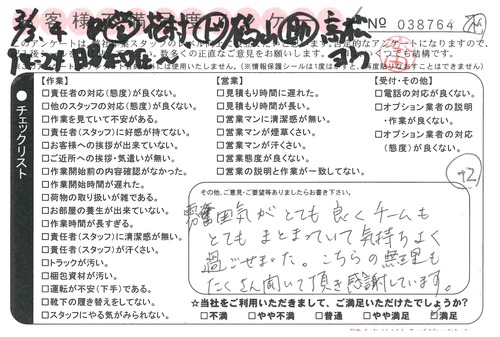 No 038764
チェックリスト
【作業】
□責任者の対応(態度)が良くない。
□他のスタッフの対応(態度)が良くない。
□作業を見ていて不安がある。
□責任者(スタッフ)に好感が持てない。
□お客様への挨拶が出来ていない。
□ご近所への挨拶・気遣いが無い。
□作業開始前の内容確認がなかった。
□作業開始時間が遅れた。
□荷物の取り扱いが雑である。
□お部屋の養生が出来ていない。
□作業時間が長すぎる。
□責任者(スタッフ)に清潔感が無い。
□責任者(スタッフ)が汗くさい。
□トラックが汚い。
□梱包資材が汚い。
□運転が不安(下手)である。
□靴下の履き替えをしてない。
□スタッフにやる気がみられない。
【営業】
□見積もり時間に遅れた。
□見積もり時間が長い。
□営業マンに清潔感が無い。
□営業マンが煙草くさい。
□営業マンが汗くさい。
□営業態度が良くない。
□営業の説明と作業が一致してない。
【受付・その他】
□電話の対応が良くない。
□オプション業者の説明
・作業が良くない。
□オプション業者の対応
(態度)が良くない。
その他、ご意見・ご要望等ありましたらお書き下さい。
囲気がとても良くチームも
とてもまとまっていて気持ちよく
過ごせました。こちらの無理も
たくさん聞いて頂き感謝しています。
☆当社をご利用いただきまして、ご満足いただけたでしょうか?
□不満 □やや不満 □普通 □やや満足 □満足